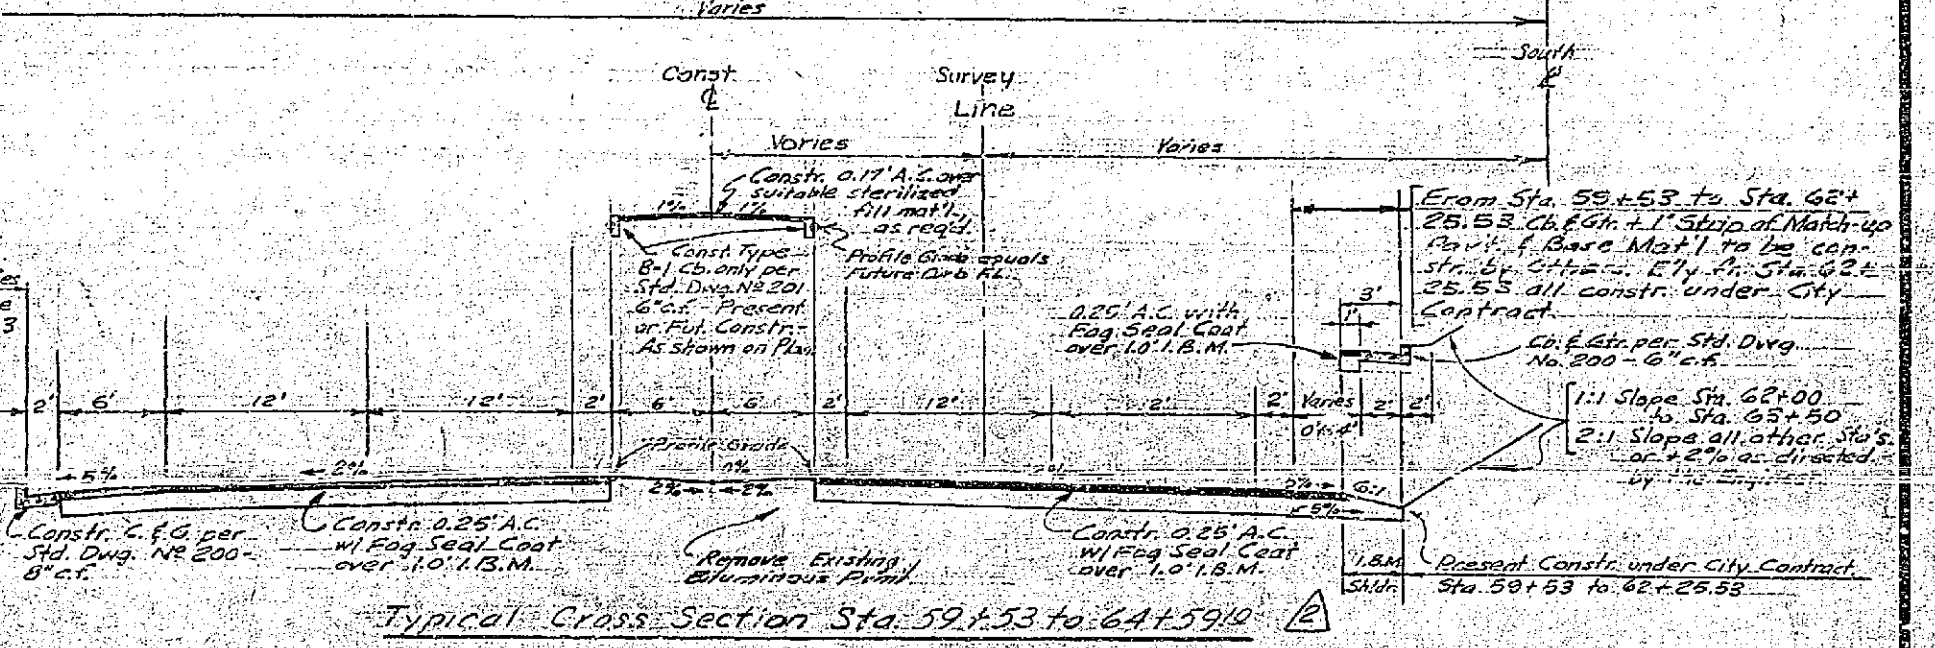 Varies
South
℄
Const
℄
Survey
Line
Varies
Varies
Constr. 0.17' A.C. over
suitable sterilized
fill mat'l.
as req'd.
1%
1%
Const. Type
B-1 Cb. only per
Std. Dwg. Nº 201
6" c.f. - Present
or Fut. Constr.-
As shown on Plan
Profile Grade equals
Future Curb F.L.
From Sta. 59+53 to Sta. 62+
25.53 Cb. & Gtr. + 1' Strip of Match-up
Pav't. & Base Mat'l to be con-
str. by Others. E'ly fr. Sta. 62+
25.53 all constr. under City
Contract
3'
1'
0.25' A.C. with
Fog Seal Coat
over 1.0' I.B.M.
Cb. & Gtr. per Std. Dwg.
No. 200 - 6" c.f.
1:1 Slope Sta. 62+00
to Sta. 65+50
2:1 Slope all other Sta's.
or +2% as directed
by the Engineer
3
2'
6'
12'
12'
2'
6'
6'
2'
12'
12'
2'
Varies
0'to4'
2'
2'
Profile Grade
5%
2%
2%
2%
5%
6:1
5%
Constr. C. & G. per
Std. Dwg. Nº 200-
8" c.f.
Constr. 0.25' A.C.
w/ Fog Seal Coat
over 1.0' I.B.M.
Remove Existing
Bituminous Pvmt.
Constr. 0.25' A.C.
w/ Fog Seal Coat
over 1.0' I.B.M.
I.B.M.
Shldr.
Present Constr. under City Contract
Sta. 59+53 to 62+25.53
Typical Cross Section Sta. 59+53 to 64+59.10
2